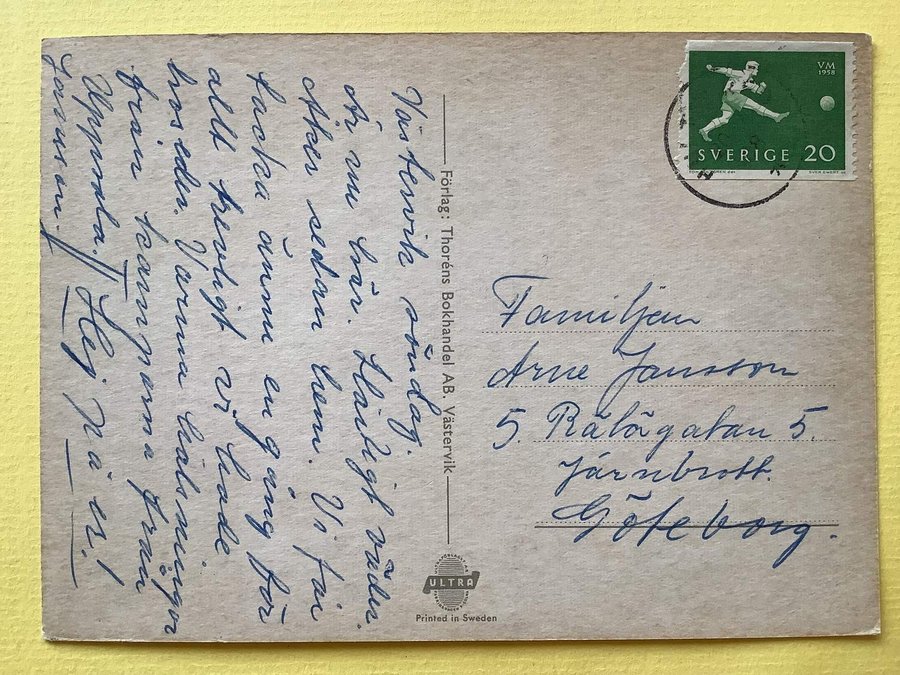 Västervik söndag.
Är nu här. Härligt väder.
Åker sedan hem. Vi får
tacka ännu en gång för
allt trevligt vi hade
hos eder. Varma hälsningar
från från
Uppsala. Hej på er!
Jansson.
Förlag: Thoréns Bokhandel AB. Västervik
ULTRA
Printed in Sweden
VM
1958
SVERIGE 20
Familjen
Arne Jansson
5. 5.
Järnbrott.
Göteborg.